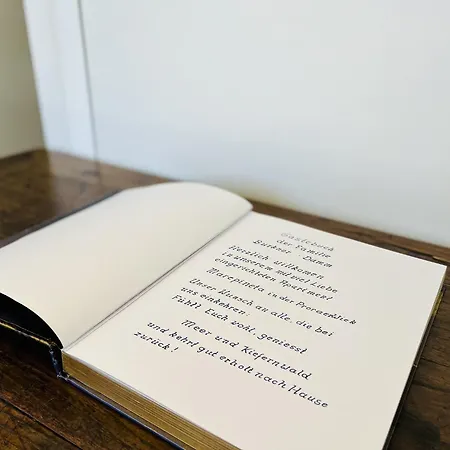 Gästebuch
der Familie
Damm
Herzlich Willkommen
in unserem mit viel Liebe
eingerichteten Apartment
Marepineta in der Proraer
Unser Wunsch an alle, die bei
uns einkehren:
Fühlt Euch wohl, geniesst
Meer und Kiefernwald
und kehrt gut erholt nach Hause
zurück!